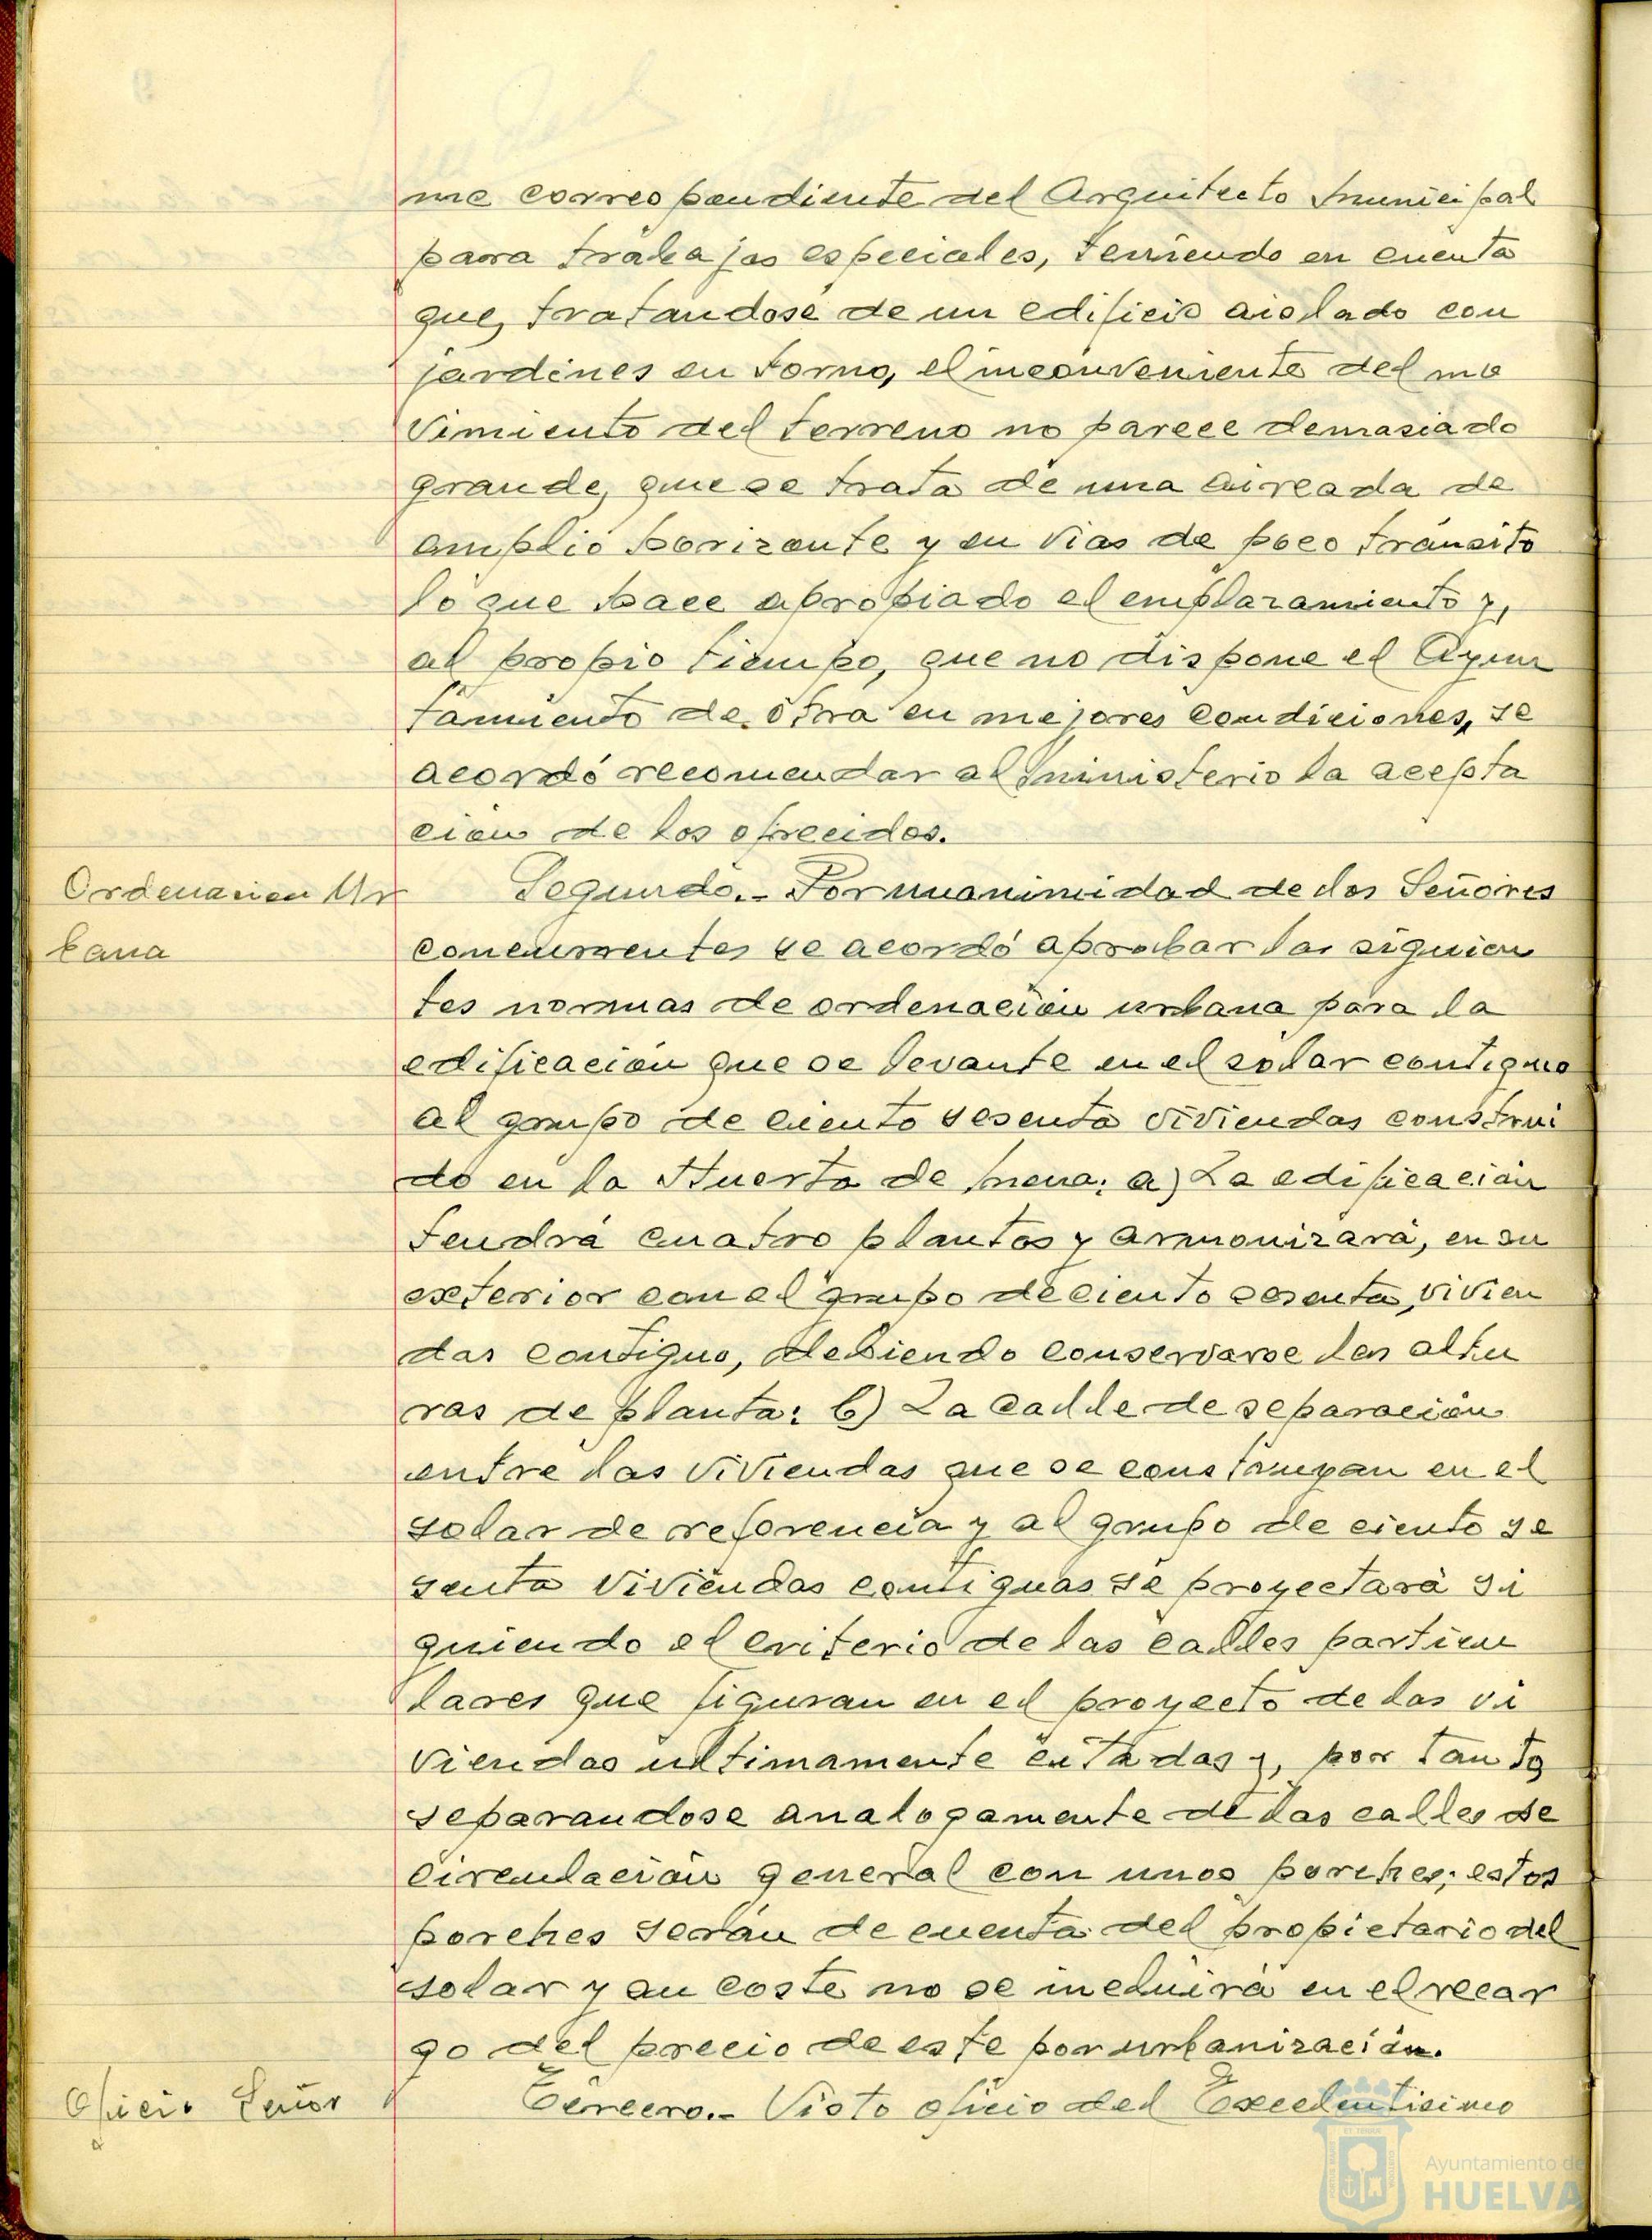 me correspondiente del Arquitecto Municipal
para trabajos especiales, teniendo en cuenta
que, tratandose de un edificio aislado con
jardines en torno, el inconveniente del mo
vimiento del terreno no parece demasiado
grande, que se trata de una aireada de
amplio horizonte y en vias de poco tránsito
lo que hace apropiado el emplazamiento y,
al propio tiempo, que no dispone el Ayun
tamiento de otra en mejores condiciones, se
acordó recomendar al Ministerio la acepta
cion de los ofrecidos.
Ordenacion Ur
bana
Segundo.- Por unanimidad de los Señores
concurrentes se acordó aprobar las siguien
tes normas de ordenación urbana para la
edificación que se levante en el solar contiguo
al grupo de ciento sesenta viviendas construi
do en la Huerta de Mena: a) La edificación
tendrá cuatro plantas y armonizará, en su
exterior con el grupo de ciento sesenta vivien
das contiguo, debiendo conservarse las altu
ras de planta: b) La calle de separación
entre las viviendas que se construyan en el
solar de referencia y al grupo de ciento se
senta viviendas contiguas se proyectará si
guiendo el criterio de las calles particu
lares que figuran en el proyecto de las vi
viendas ultimamente citadas y, por tanto,
separandose analogamente de las calles de
circulación general con unos porches; estos
porches serán de cuenta del propietario del
solar y su coste no se incluirá en el recar
go del precio de este por urbanización.
Oficio Señor
Tercero.- Visto oficio del Excelentisimo
Ayuntamiento de
HUELVA